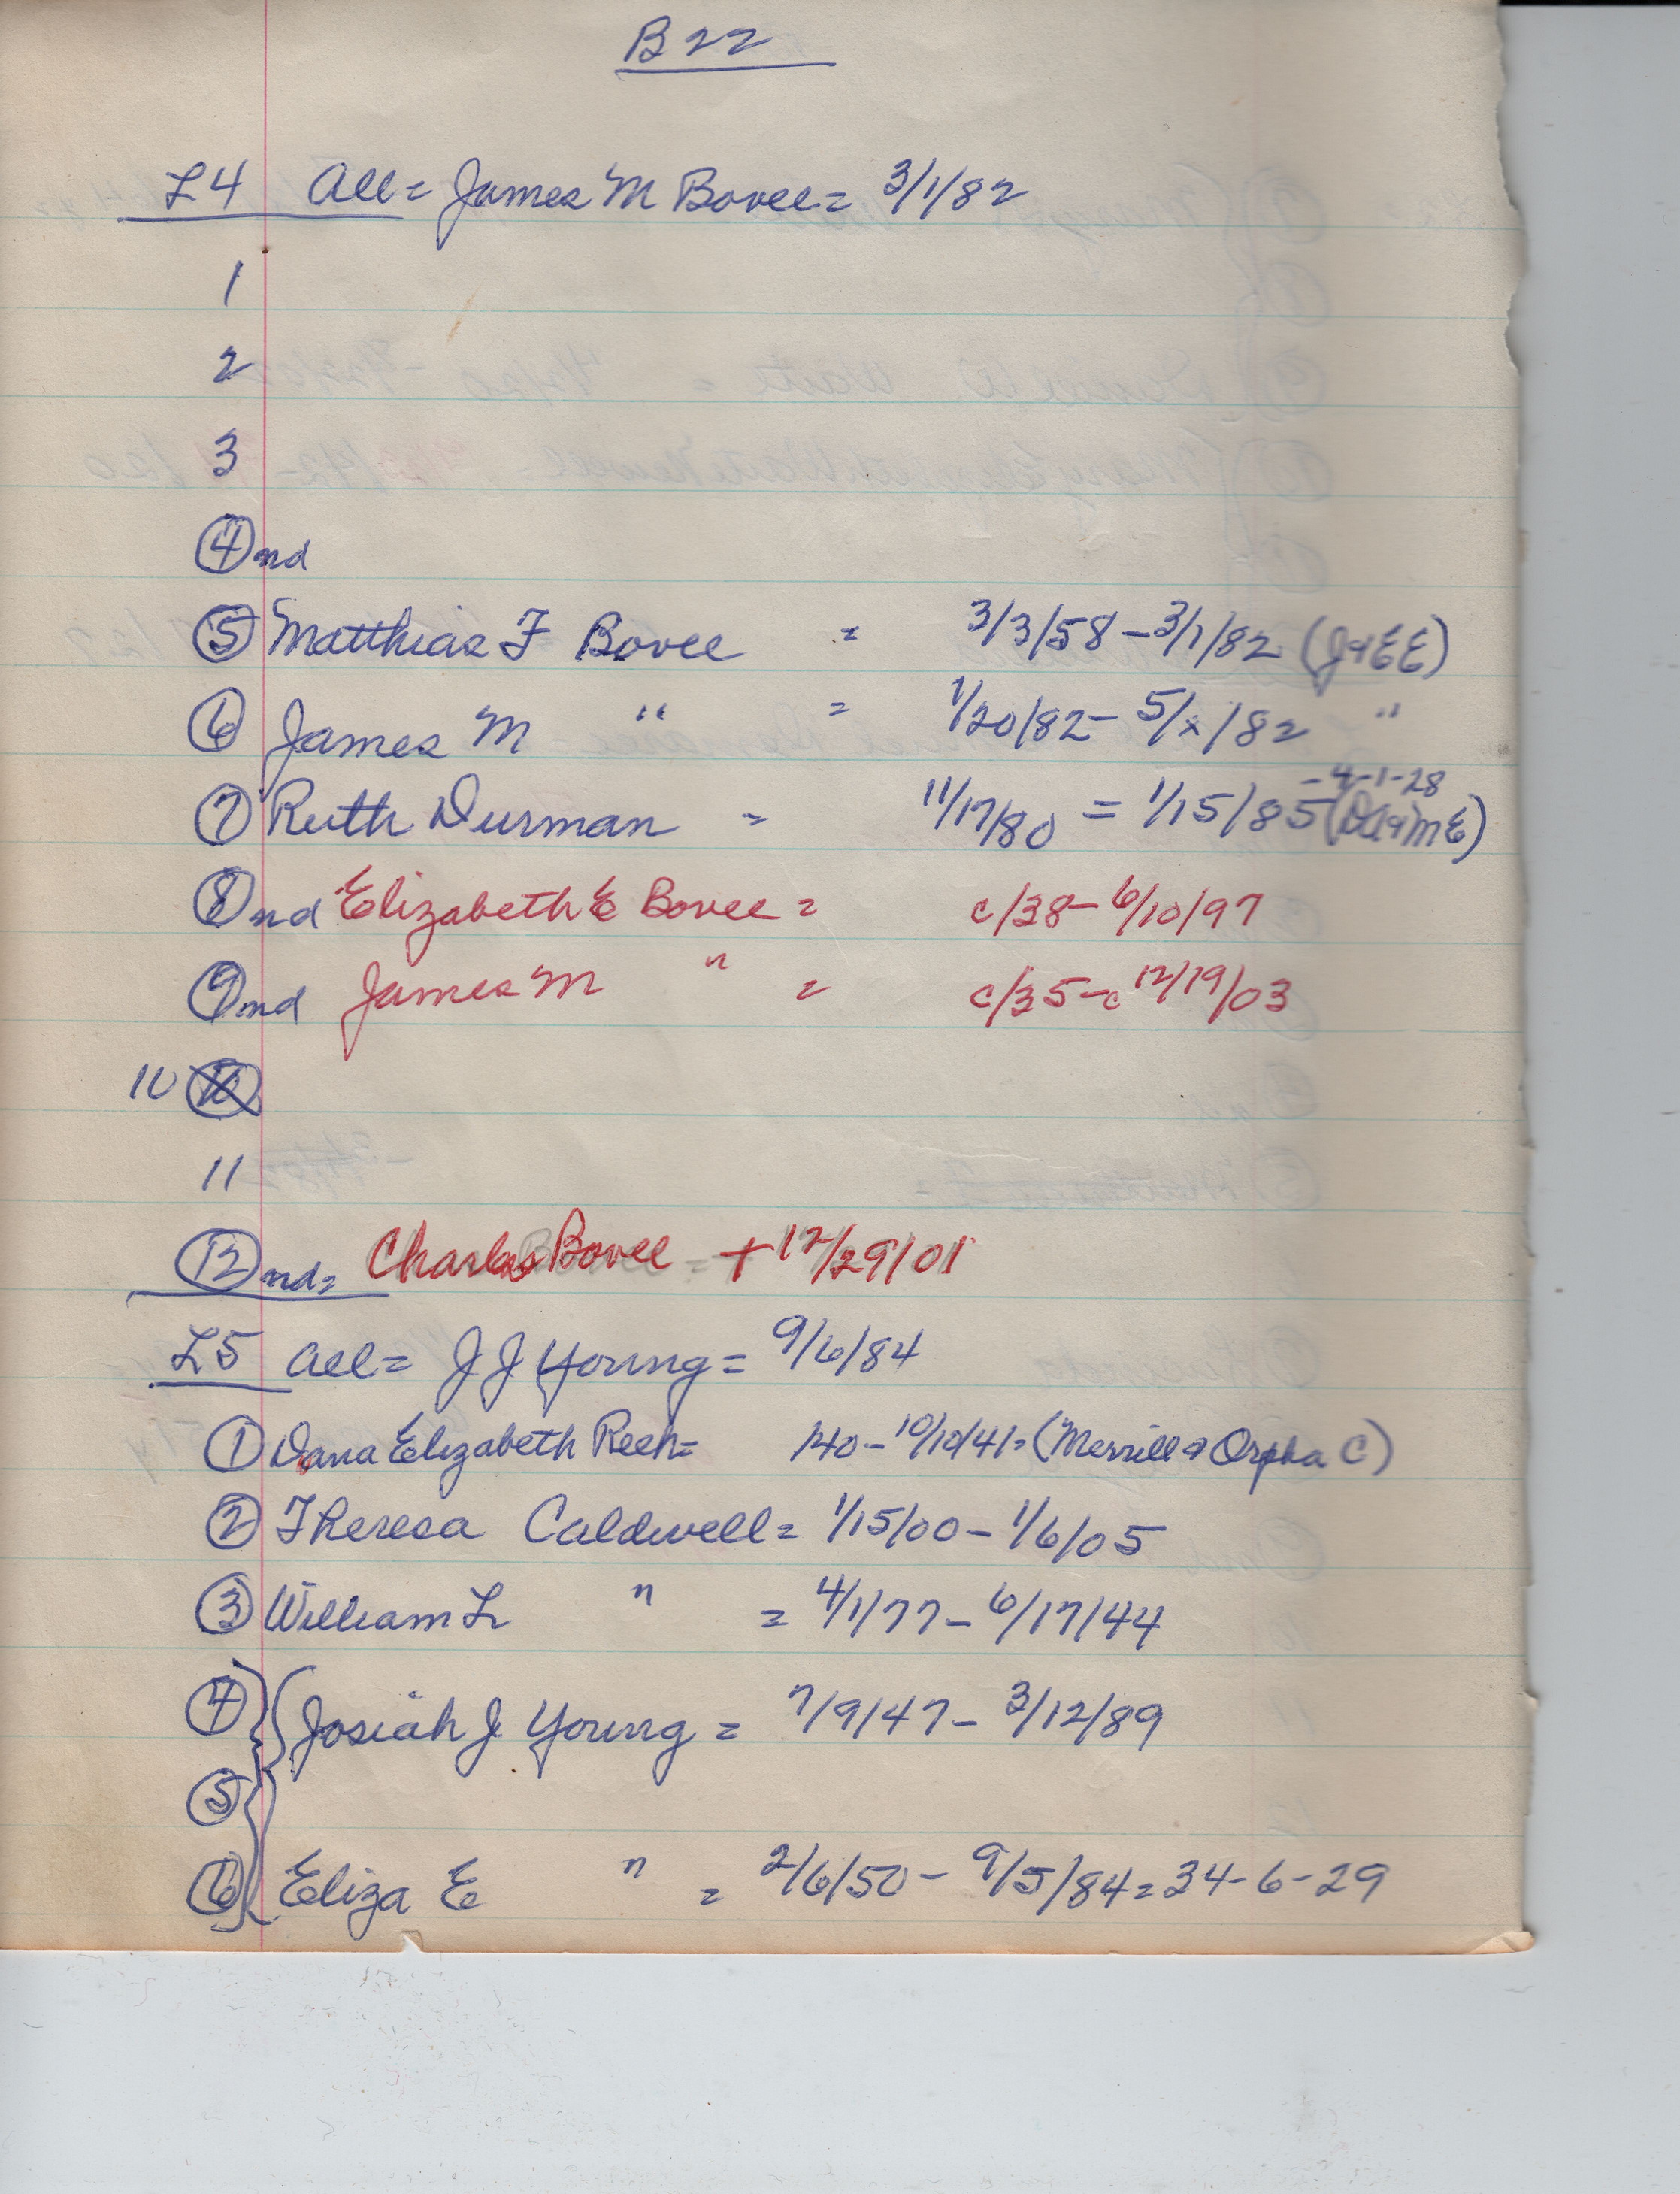 B22
L4 All = James M Bovee = 3/1/82
1
2
3
4 nd
5 Matthias F Bovee = 3/3/58 - 3/1/82 (J & E E)
6 James M " = 1/20/82 - 5/x/82 "
- 4-1-28
7 Ruth Durman = 11/17/80 = 1/15/85 (
8 nd Elizabeth E Bovee = c/38 - 6/10/97
9 nd James M " = c/35 - c 12/19/03
10
11
12 nd = Charles Bovee = + 12/29/01
L5 All = J J Young = 9/6/84
1 Dana Elizabeth Reek = /40 - 10/10/41 = (Merrill & Orpha C)
2 Theresa Caldwell = 1/15/00 - 1/6/05
3 William L " = 4/1/77 - 6/17/44
4 Josiah J Young = 7/9/47 - 3/12/89
5
6 Eliza E " = 2/6/50 - 9/5/84 = 34-6-29